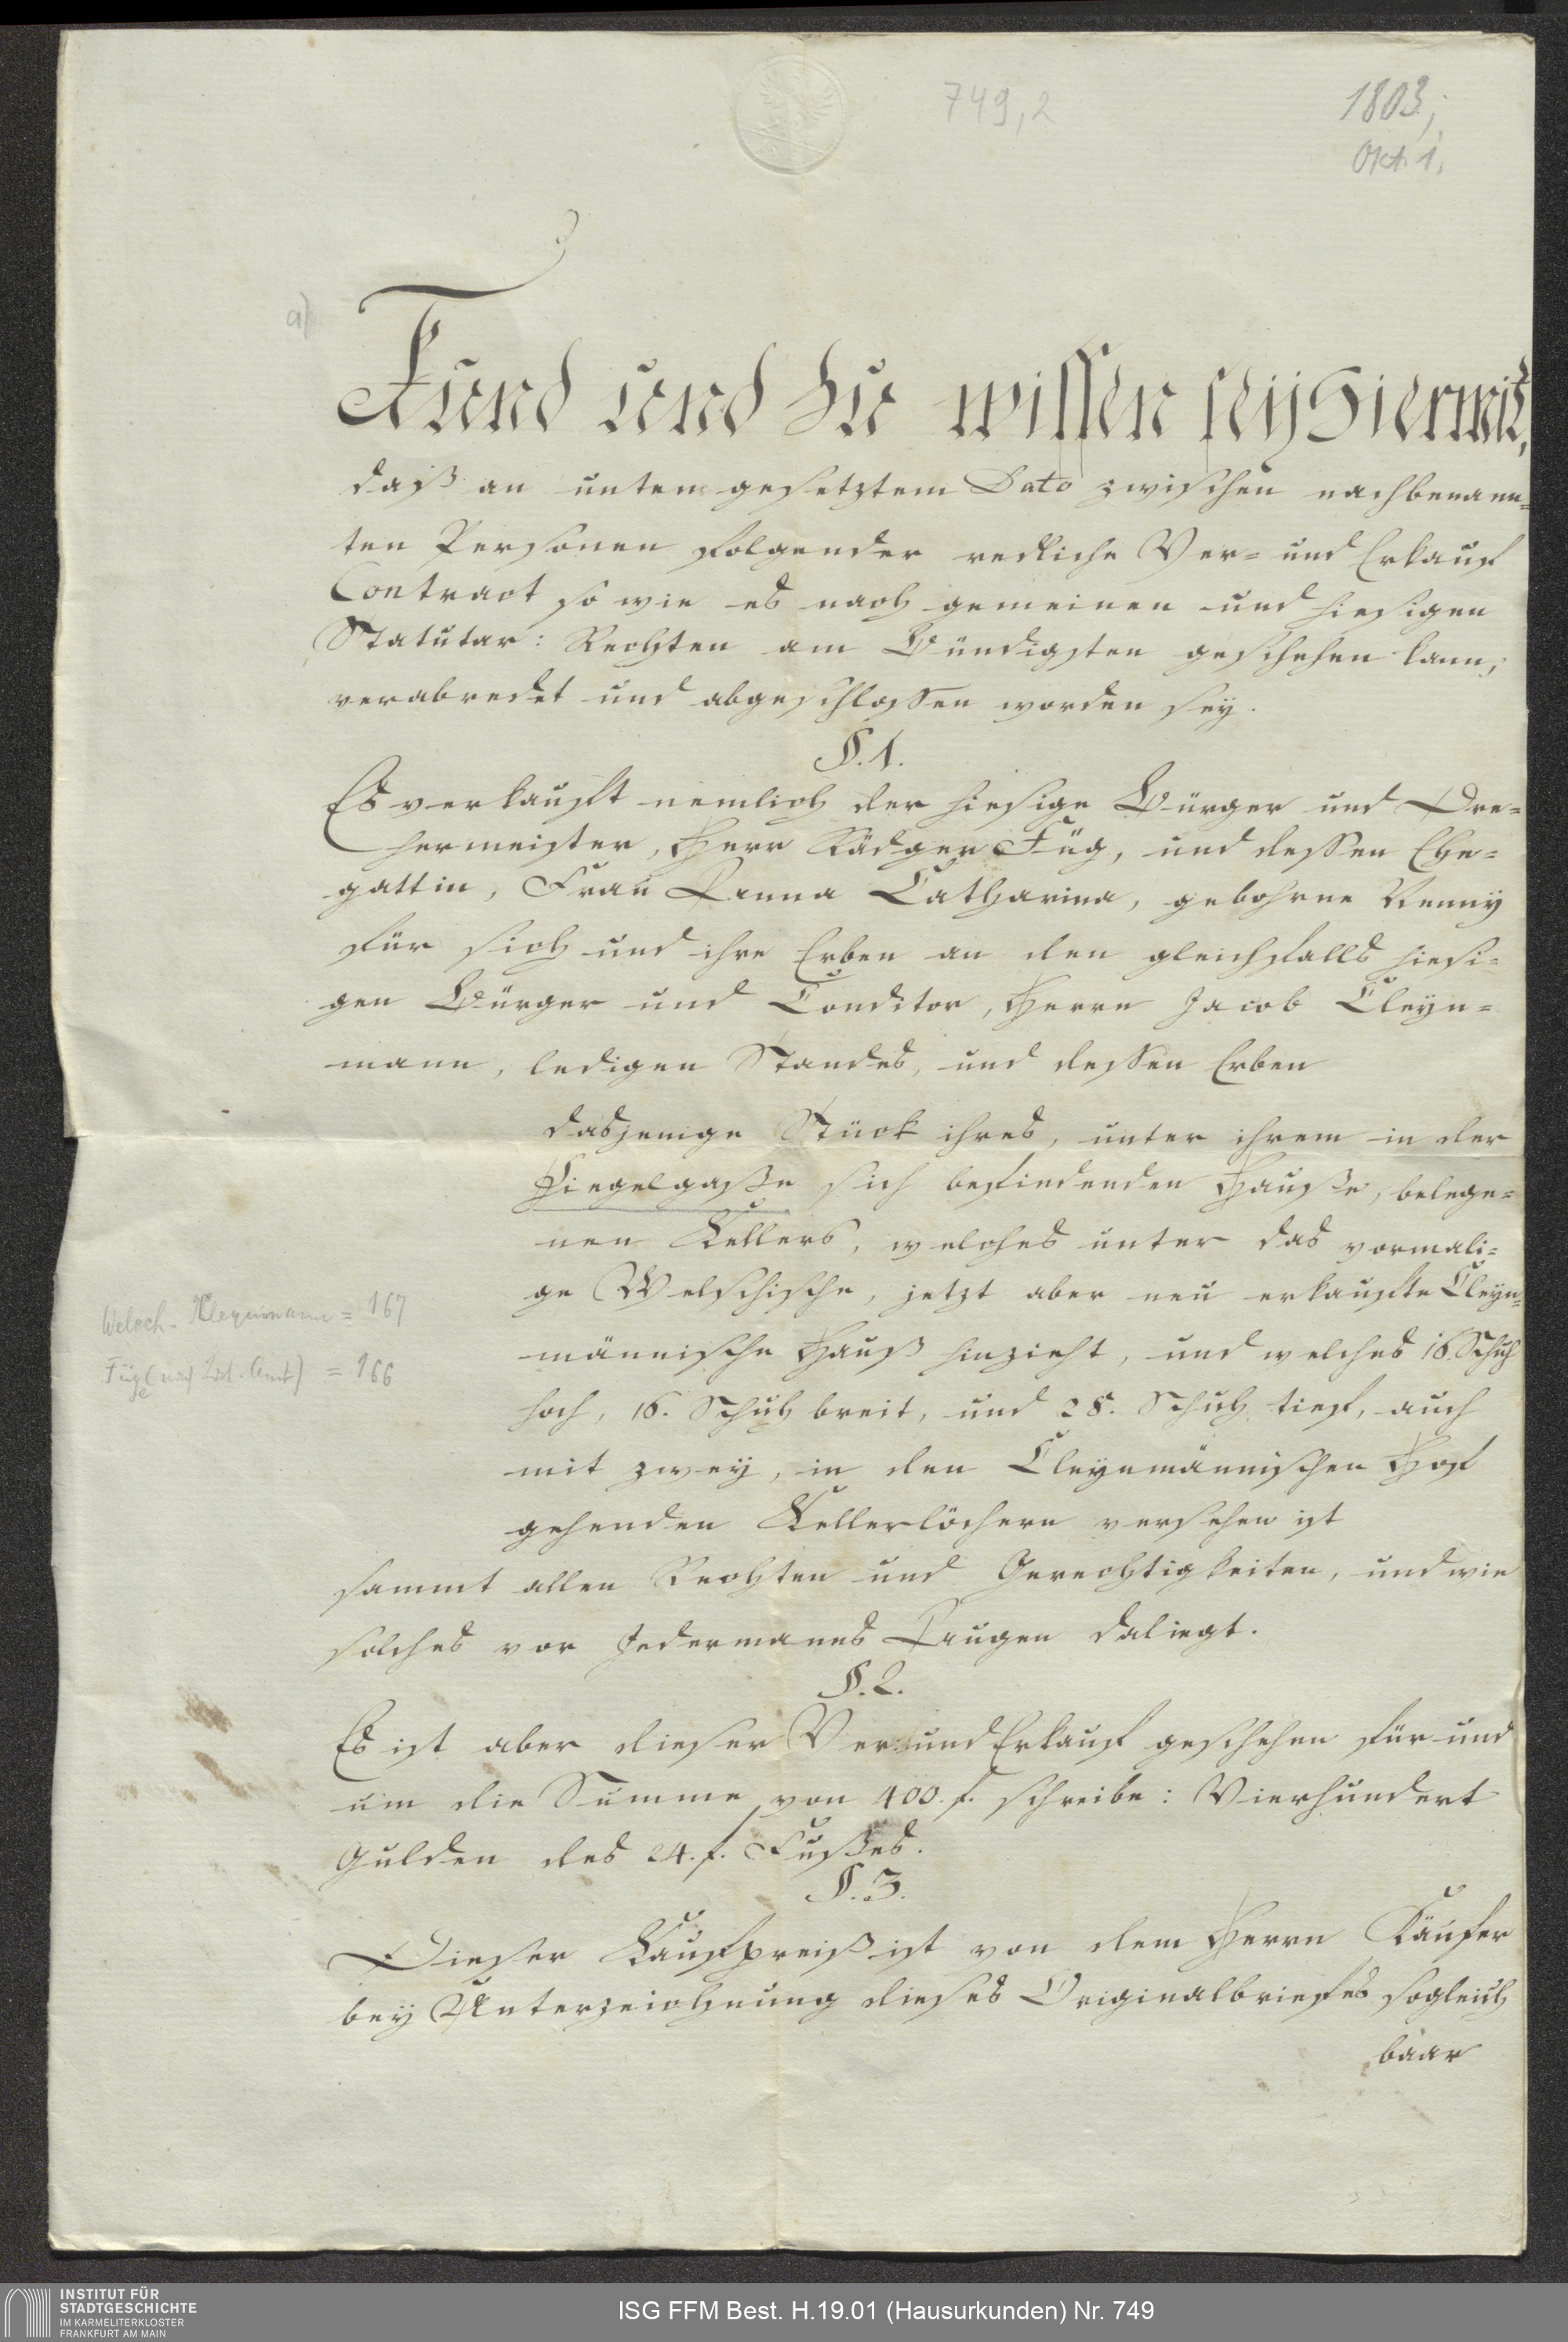 749,2
1803,
Okt. 1.
a)
Kund und zu wissen sey hiermit,
daß an untem gesetztem Dato zwischen nachbenann=
ten Personen folgender redliche Ver= und Erkauf
Contract so wie es nach gemeinen und hiesigen
Statutar: Rechten am Bündigsten geschehen kann,
verabredet und abgeschlossen worden sey.
§. 1.
Es verkauft nemlich der hiesige Bürger und Dre=
hermeister, Herr Rüdger Füg, und dessen Ehe=
gattin, Frau Anna Catharina, gebohrne Nenny
für sich und ihre Erben an den gleichfalls hiesi=
gen Bürger und Conditor, Herrn Jacob Cleyn=
mann, ledigen Standes, und dessen Erben
dasjenige Stück ihres, unter ihrem in der
Ziegelgasse sich befindenden Hauße, belege=
nen Kellers, welches unter das vormali=
ge Welschische, jetzt aber neu erkaufte Cleyn=
männische Hauß hinzieht, und welches 16. Schuh
hoch, 16. Schuh breit, und 28. Schuh tief, auch
mit zwey, in den Cleynmännischen Hof
gehenden Kellerlöchern versehen ist
Welsch- Kleynmann = 167
Füg = 166
sammt allen Rechten und Gerechtigkeiten, und wie
solches vor Jedermanns Augen daliegt.
§. 2.
Es ist aber dieser Ver- und Erkauf geschehen für und
um die Summe von 400. f. schreibe: Vierhundert
Gulden des 24. f. Fußes.
§. 3.
Dieser Kaufpreiß ist von dem Herrn Käufer
bey Unterzeichnung dieses Originalbriefes sogleich
baar
INSTITUT FÜR
STADTGESCHICHTE
IM KARMELITERKLOSTER
FRANKFURT AM MAIN
ISG FFM Best. H.19.01 (Hausurkunden) Nr. 749